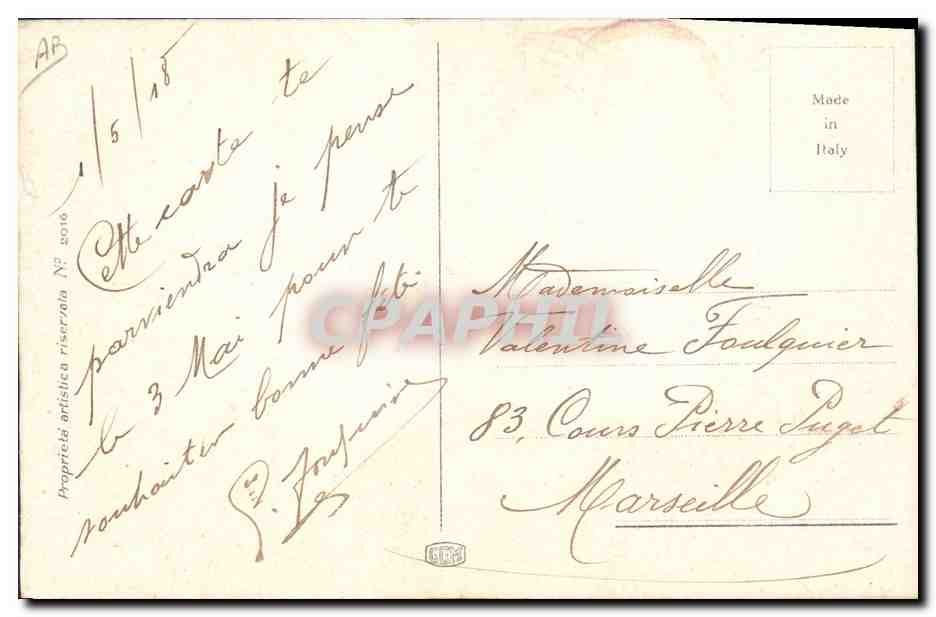 AB
1/5/18
Cette carte te
parviendra je pense
le 3 Mai pour te
souhaiter bonne fête
Proprietà artistica riservata Nº 2016
Made
in
Italy
Mademoiselle
Valentine Foulquier
83, Cours Pierre Puget
Marseille
CPAPHIL